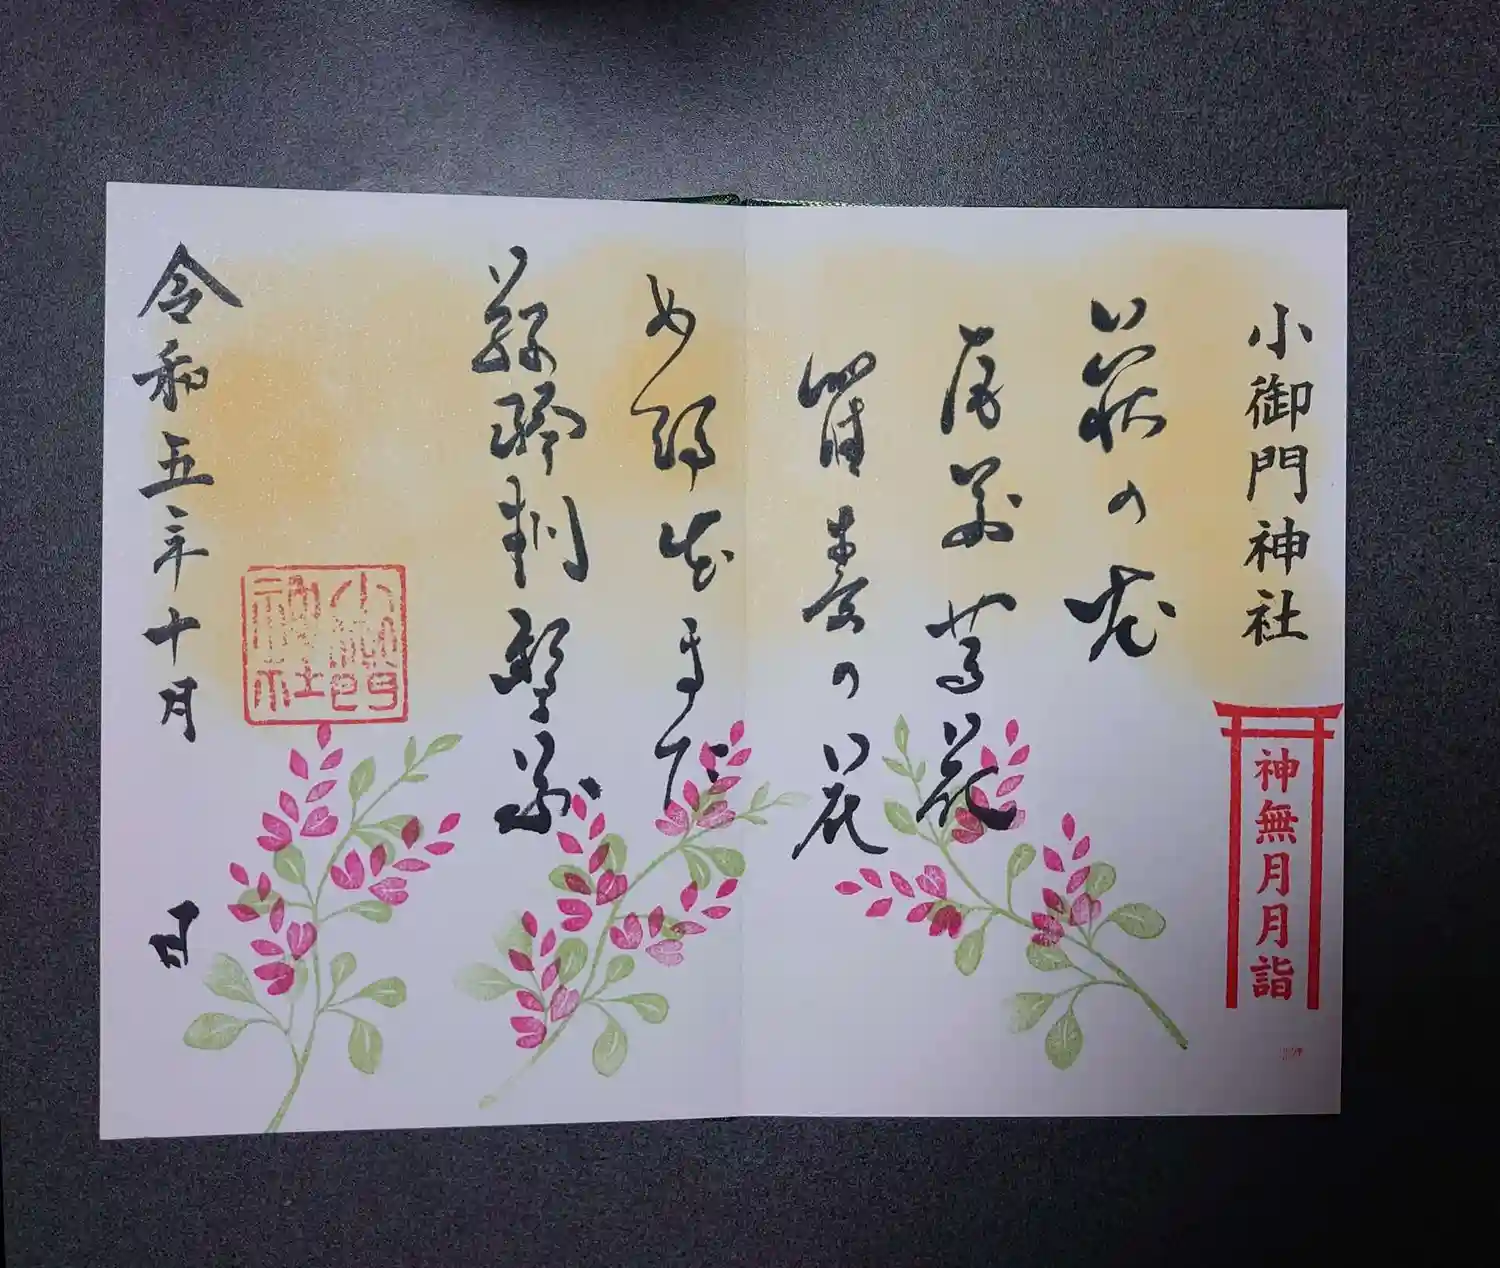 小御門神社
神無月月詣
萩の花
尾花葛花
瞿麦の花
女郎花また
藤袴朝貌花
令和五年十月 日
小御門
神社